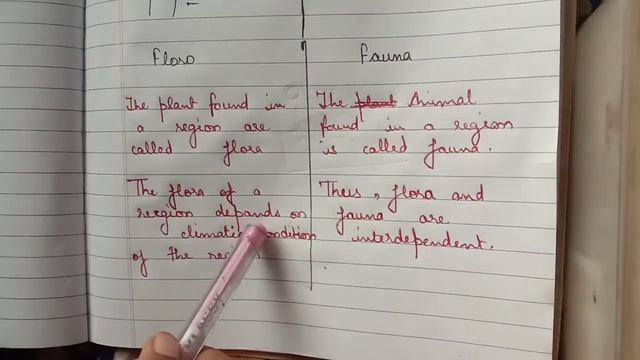 Flora
The plant found in
a region are
called flora
The flora of a
reegion depands on
climatic condition
of the
Fauna
The plant Animal
found in a region
is called fauna.
Theus, flora and
fauna are
interdependent.